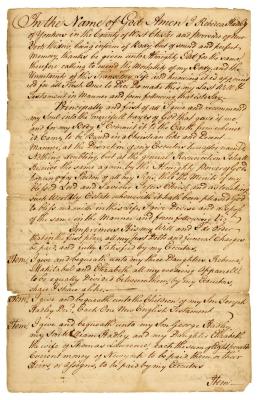 In the Name of God Amen I Rebecca
of Yonkers in the County of West Chester and Province of New
York Widow being infirm of Body but of sound and perfect
Memory thanks be given unto Almighty God for the same
therefore calling to mind the Mortality of my Body and the
of this Transitory Life and knowing it is appointed
for all Flesh Once to Die Do make this my Last Will &
Testament in Manner and form following that is to say
Principally and first of all I give and recommend
my Soul into the hands of God that gave it me
and for my Body I Commit it to the Earth from whence
it Came to be Buried in a Christian like and Decent
Manner at the Discretion of my Executors hereafter named
Nothing doubting but at the general Resurrection I shall
receive the same again by the Almighty Power of God
of my Sins thro the Merits of my
Lord and Saviour Jesus Christ and as touching
such Worldly Estate wherewith it hath been pleased God
to bless me with in this life I give Devise and dispose
of the same in the Manner and form following Viz
Imprimis it is my Will and I do order
that in the first place all my Just Debts and funeral Charges
be paid and fully satisfied by my Executors
Item I give and bequeath unto my three Daughters Rebecca
Mehitabel and Elizabeth all my wearing Apparel
to be equally Divided between them by my Executors
share & share alike
Item I give and bequeath unto the Children of my Son Joseph
Each One New English Testament
Item I give and bequeath unto my Son George
my and my Daughter Elizabeth
the wife of Thomas Lawrence Each the sum of
Current money of New york to be paid them or their
Heirs or assigns, to be paid by my Executors
Item